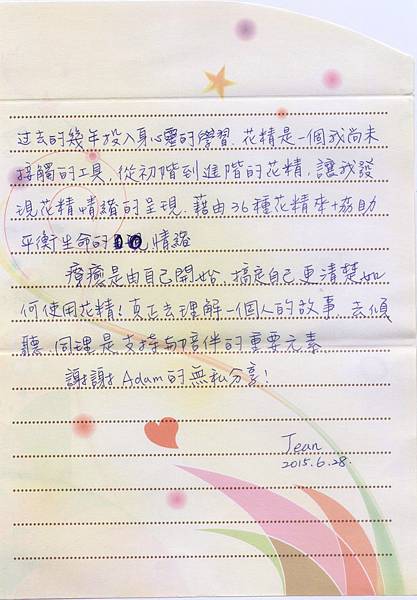 过去的幾年投入身心靈的學習. 花精是一個我尚未
接觸的工具, 從初階到進階的花精, 讓我發
現花精情緒的呈現. 藉由36種花精來協助
平衡生命的情緒
療癒是由自己開始, 搞定自己更清楚如
何使用花精! 真正去理解一個人的故事 去傾
聽 同理是支持與陪伴的重要元素
謝謝 Adam的無私分享!
Jean
2015.6.28.